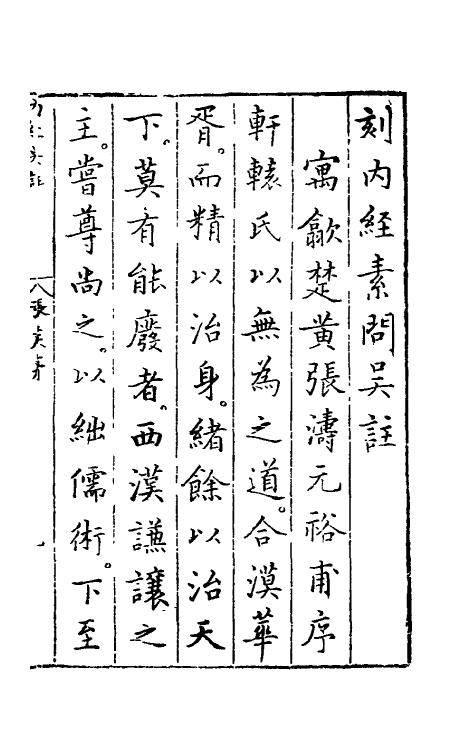 刻内経素問吴註
寓歙楚黄張濤元裕甫序
軒轅氏以無為之道。合漠華
胥。而精以治身。緒餘以治天
下。莫有能廢者。西漢謙讓之
主。嘗尊尚之。以絀儒術。下至